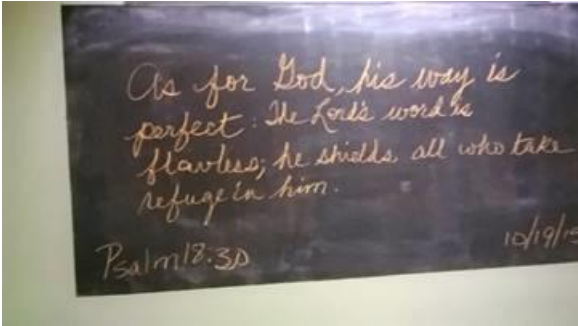 As for God, his way is
perfect: The Lord's word is
flawless; he shields all who take
refuge in him.
Psalm 18:30
10/19/15